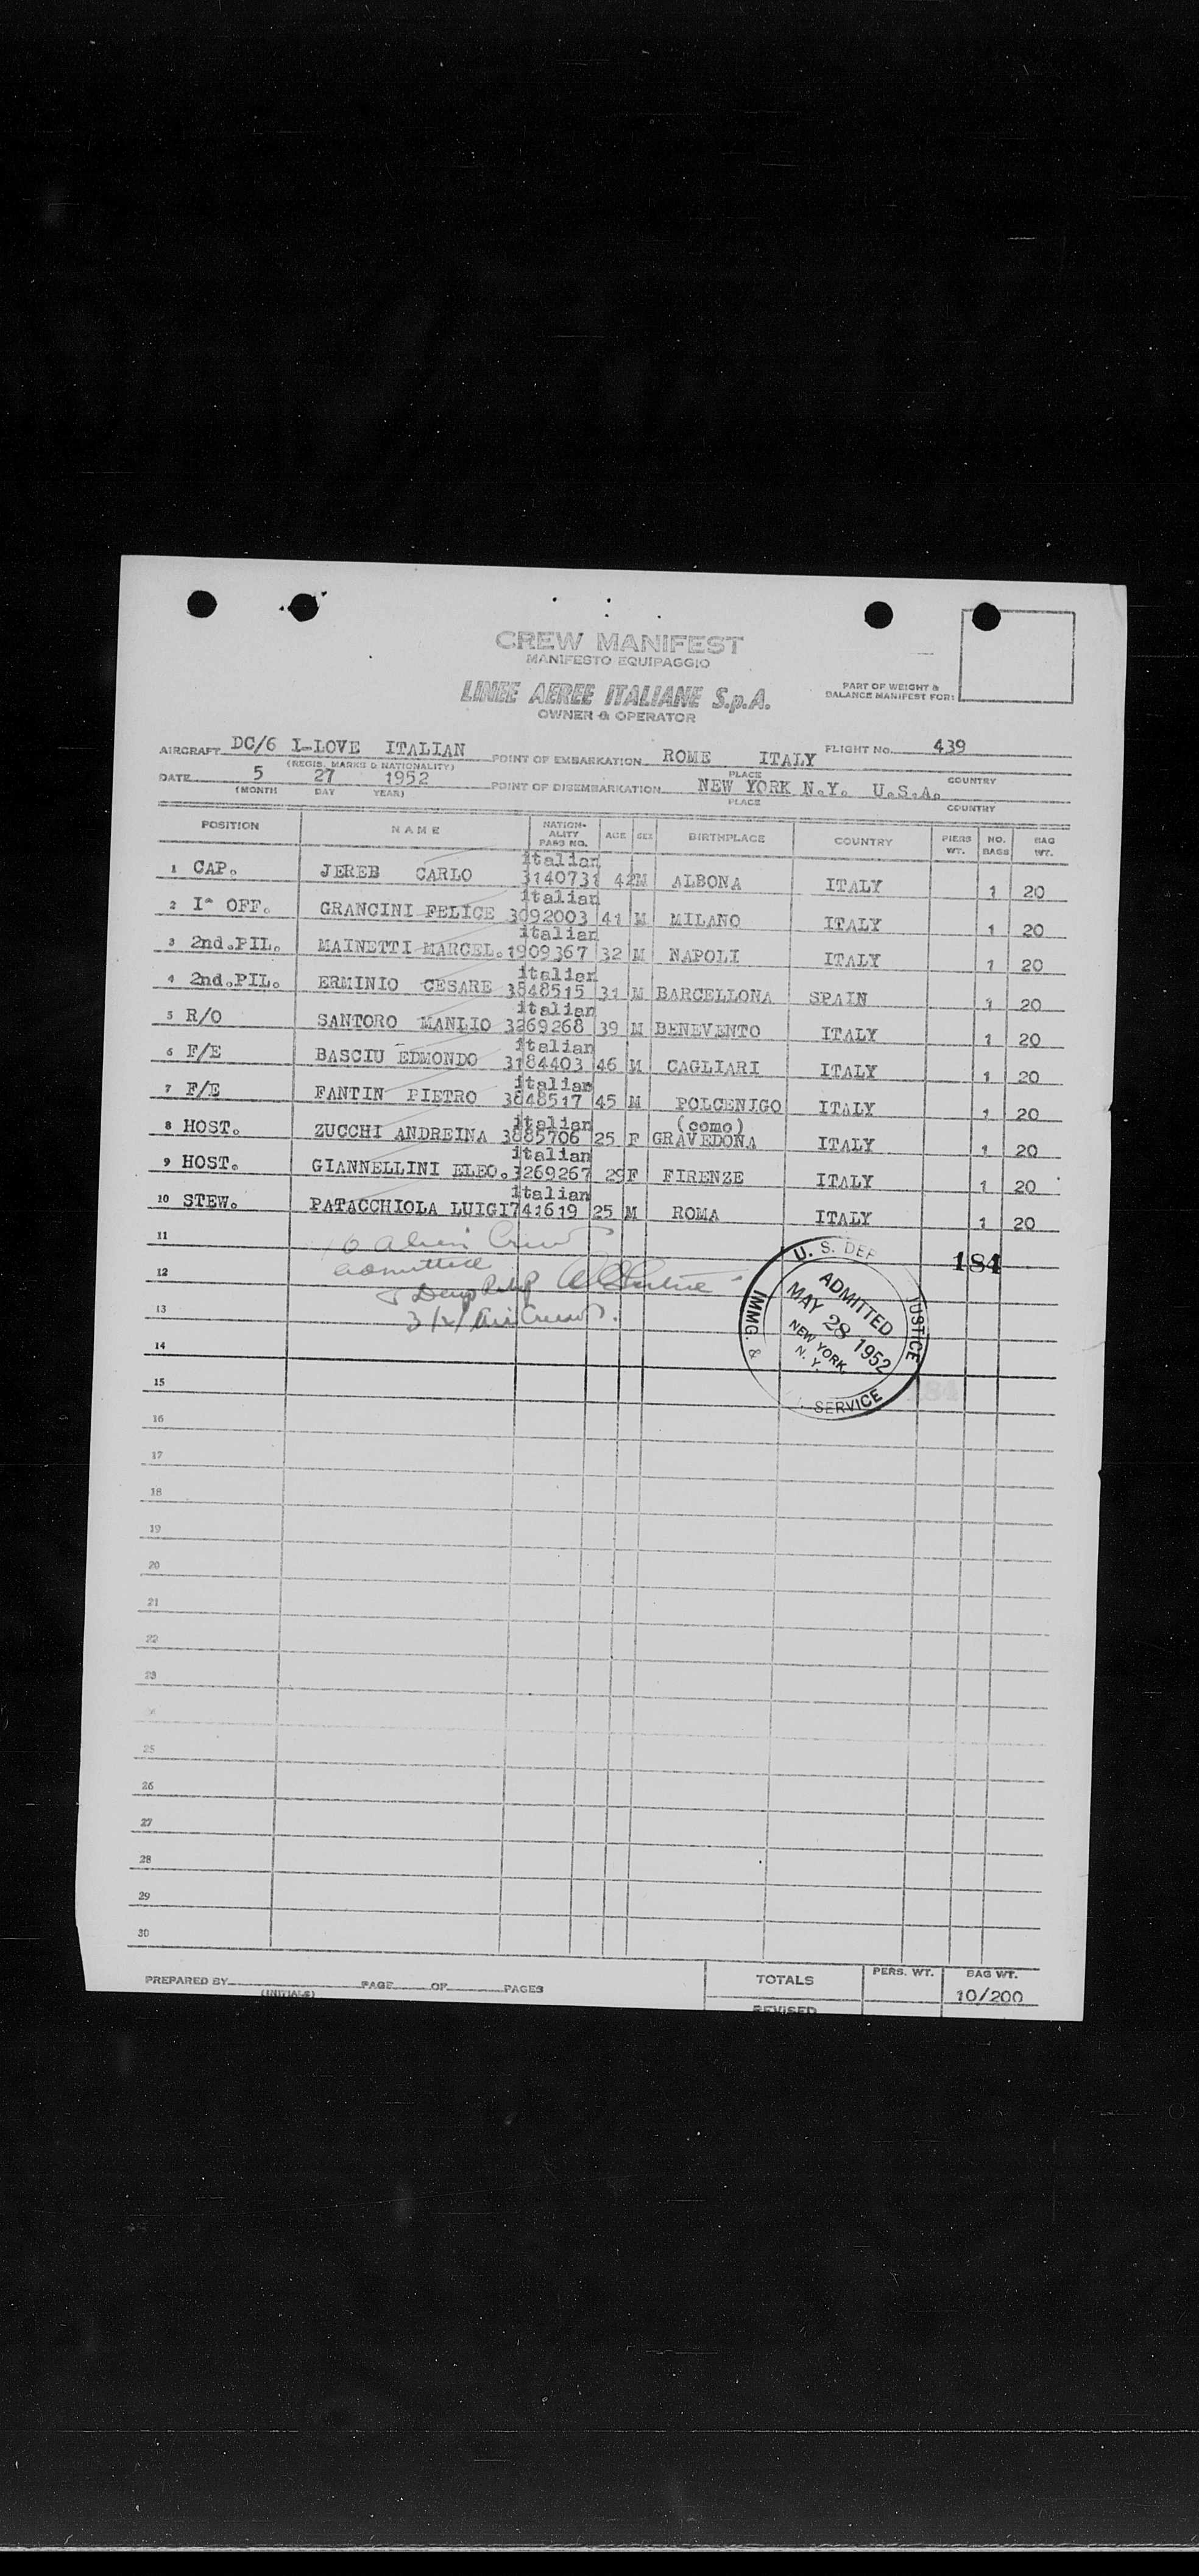 CREW MANIFEST
MANIFESTO EQUIPAGGIO
LINEE AEREE ITALIANE S.p.A.
OWNER & OPERATOR
PART OF WEIGHT &
BALANCE MANIFEST FOR:
AIRCRAFT DC/6 I-LOVE ITALIAN POINT OF EMBARKATION ROME ITALY FLIGHT No. 439
(REGIS. MARKS & NATIONALITY) PLACE COUNTRY
DATE 5 27 1952 POINT OF DISEMBARKATION NEW YORK N.Y. U.S.A.
(MONTH DAY YEAR) PLACE COUNTRY
POSITION NAME NATION-ALITY PASS NO. AGE SEX BIRTHPLACE COUNTRY PIERS WT. NO. BAGS BAG WT.
italian
1 CAP. JEREB CARLO 3140731 42 M ALBONA ITALY 1 20
italian
2 I° OFF. GRANCINI FELICE 3092003 41 M MILANO ITALY 1 20
italian
3 2nd.PIL. MAINETTI MARCEL. 1909367 32 M NAPOLI ITALY 1 20
italian
4 2nd.PIL. ERMINIO CESARE 3848515 31 M BARCELLONA SPAIN 1 20
italian
5 R/O SANTORO MANLIO 3269268 39 M BENEVENTO ITALY 1 20
italian
6 F/E BASCIU EDMONDO 3184403 46 M CAGLIARI ITALY 1 20
italian
7 F/E FANTIN PIETRO 3848517 45 M POLCENIGO ITALY 1 20
italian (como)
8 HOST. ZUCCHI ANDREINA 3885706 25 F GRAVEDONA ITALY 1 20
italian
9 HOST. GIANNELLINI ELEO. 3269267 29 F FIRENZE ITALY 1 20
italian
10 STEW. PATACCHIOLA LUIGI 741619 25 M ROMA ITALY 1 20
11 10 Alien Crew
184
12 admitted
13
14
15
16
17
18
19
20
21
22
23
25
26
27
28
29
30
U. S. DEP JUSTICE
ADMITTED
MAY 28 1952
NEW YORK,
N. Y.
IMMG. & SERVICE
PREPARED BY PAGE OF PAGES
(INITIALS)
TOTALS PERS. WT. BAG WT.
10/200
REVISED